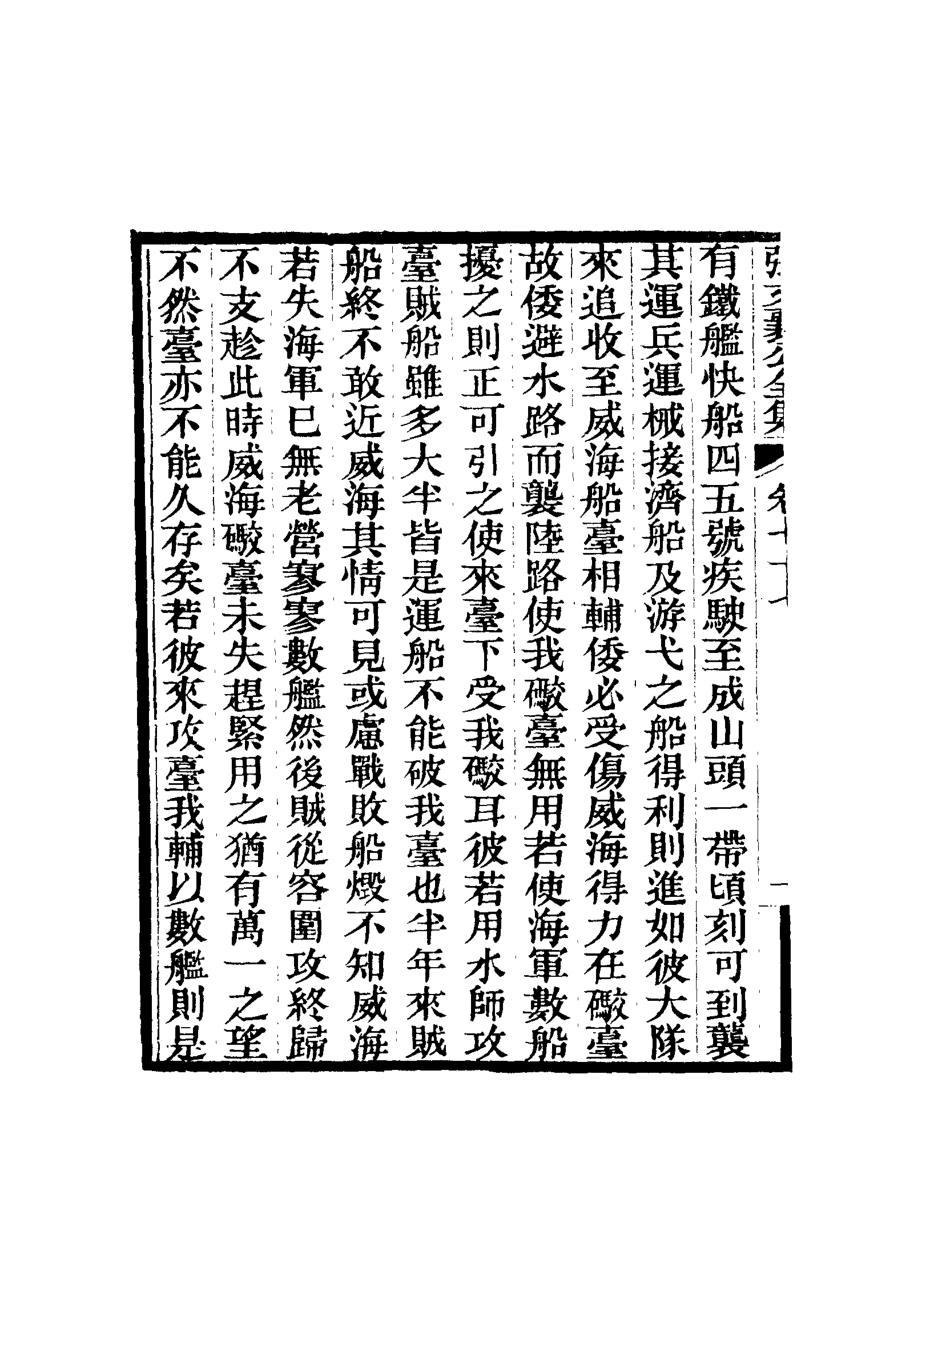 有鐵艦快船四五號疾駛至成山頭一帶頃刻可到襲
其運兵運械接濟船及游弋之船得利則進如彼大隊
來追收至威海船臺相輔倭必受傷威海得力在礮臺
故倭避水路而襲陸路使我礮臺無用若使海軍數船
擾之則正可引之使來臺下受我礮耳彼若用水師攻
臺賊船雖多大半皆是運船不能破我臺也半年來賊
船終不敢近威海其情可見或慮戰敗船燬不知威海
若失海軍已無老營寥寥數艦然後賊從容圍攻終歸
不支趁此時威海礮臺未失趕緊用之猶有萬一之望
不然臺亦不能久存矣若彼來攻臺我輔以數艦則是